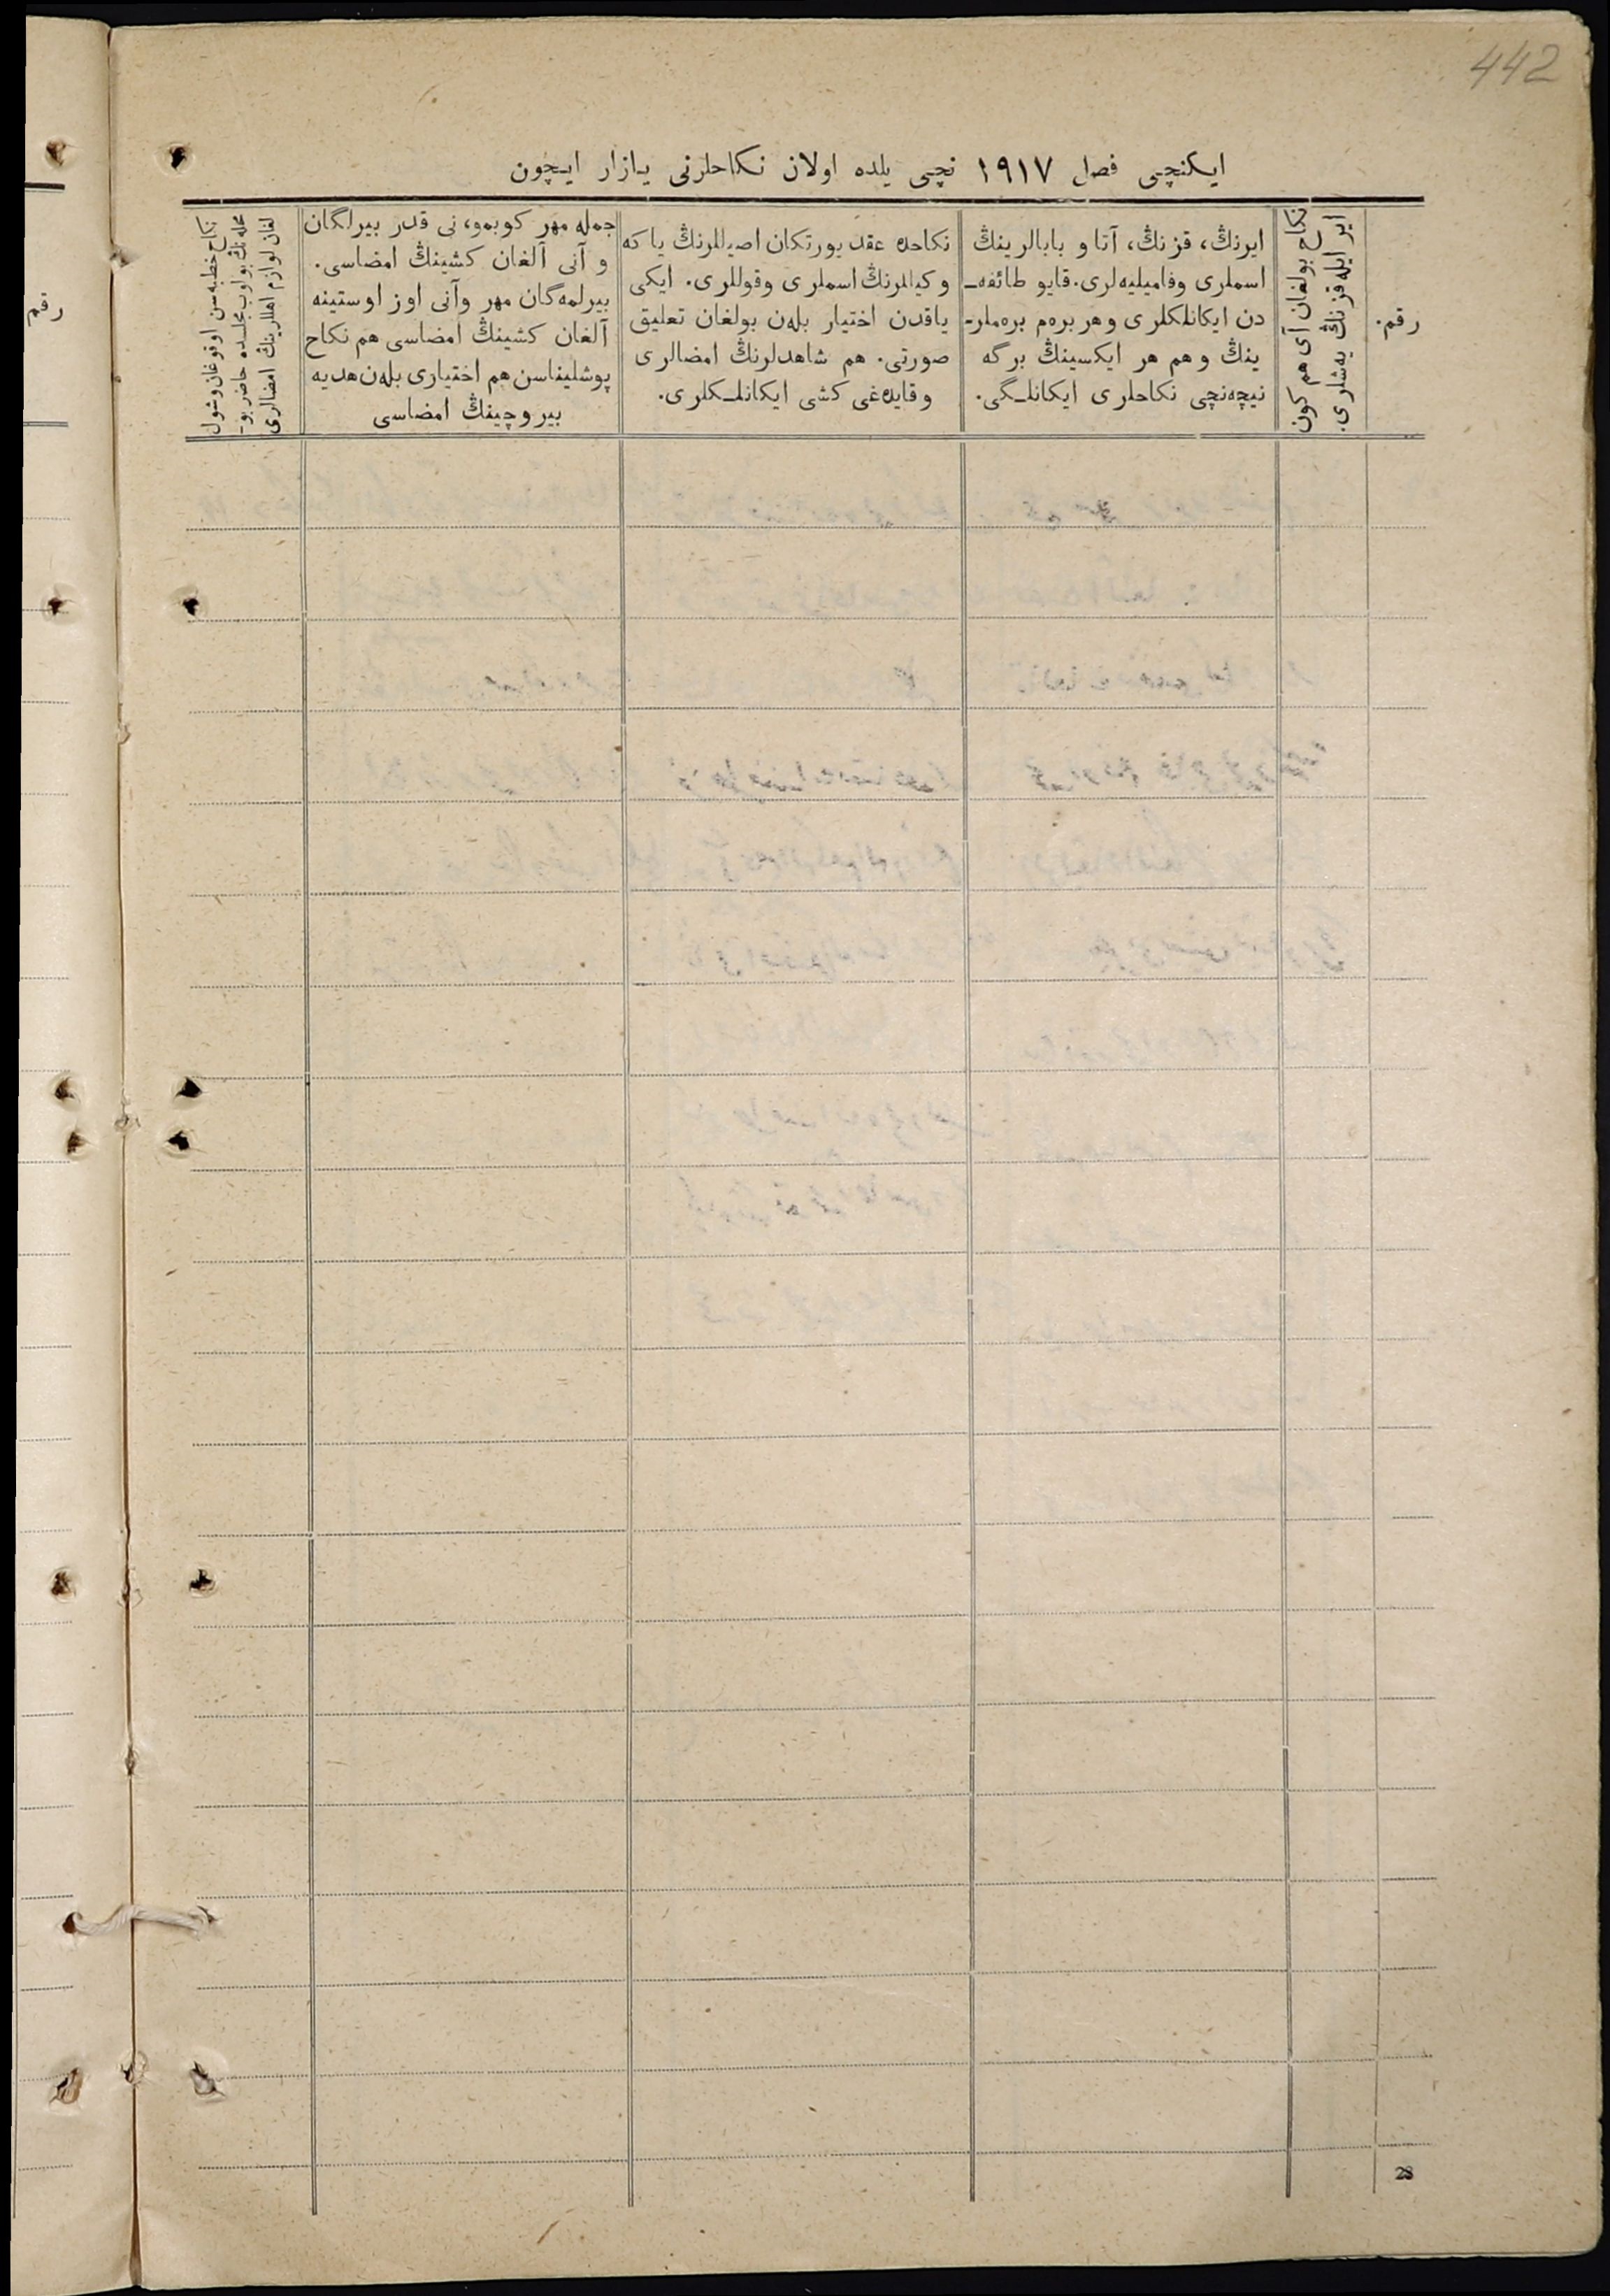 442
ایکنچی فصل ۱۹۱۷ نچی یلده اولان نکاحلرنی یازار ایچون
رقم.
نکاح بولغان آی هم کون
ایر ایله قزنڭ یه‌شلری.
ایرنڭ، قزنڭ، آتا و بابالرینڭ
اسملری وفامیلیه‌لری. قایو طائفه‌ـ
دن ایکانلکلری وهر بره‌م بره‌ملرـ
ینڭ و هم هر ایکسینڭ برگه
نیچه‌نچی نکاحلری ایکانلـگی.
نکاحده عقد یورتکان اصیللرنڭ یا که
وکیللرنڭ اسملری وقوللری. ایکی
یاقدن اختیار بله‌ن بولغان تعلیق
صورتی. هم شاهدلرنڭ امضالری
وقایده‌غی کشی ایکانلـکلری.
جمله مهر کوبمو، نی قدر بیرلگان
و آنی آلغان کشینڭ امضاسی.
بیرلمه‌گان مهر وآنی اوز اوستینه
آلغان کشینڭ امضاسی هم نکاح
پوشلیناسن هم اختیاری بله‌ن هدیه
بیروچینڭ امضاسی
نکاح خطبه‌سن اوقوغان وشول
محله‌نڭ بولوب مجلسده حاضر بوـ
لغان لوازم اهللارینڭ امضالری
رقم
28